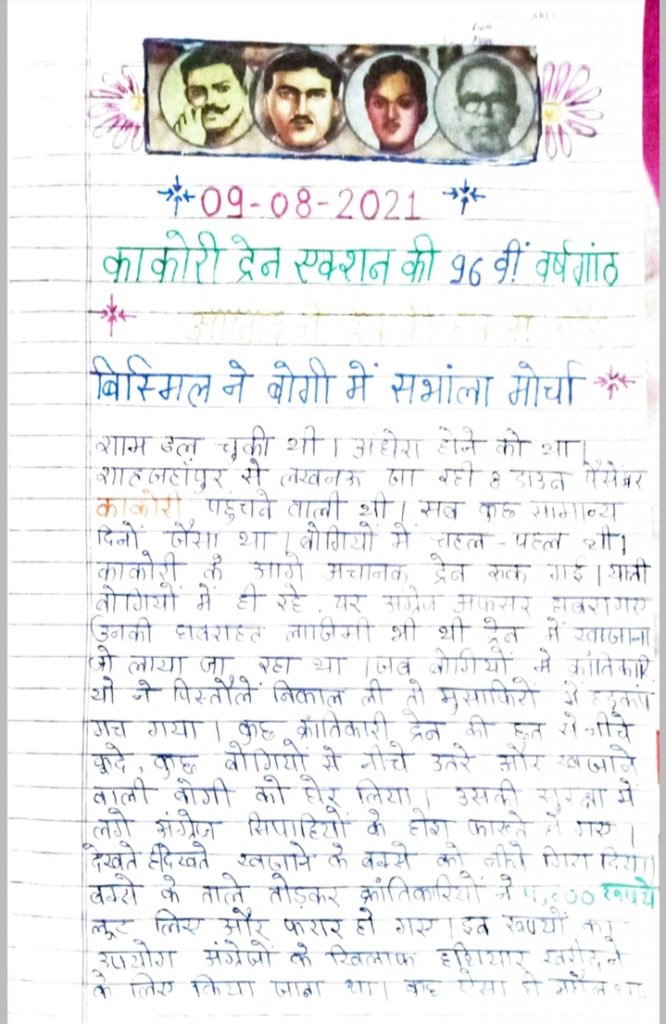 09-08-2021
काकोरी ट्रेन एक्शन की 96 वीं वर्षगांठ
आजाद ने ट्रेन की छत से और
बिस्मिल ने बोगी में सभांला मोर्चा
शाम ढल चूकी थी । अंधेरा होने को था ।
शाहजहाँपुर से लखनऊ जा रही 8 डाउन पैसेंबर
काकोरी पहुंचने वाली थी । सब कुछ सामान्य
दिनों जैसा था । बोगियों में चहल-पहल थी ।
काकोरी के आगे अचानक ट्रेन रूक गई । यात्री
बोगियों में ही रहे, पर अंग्रेज अफसर घबरा गए
उनकी घबराहट लाजिमी भी थी ट्रेन में खाजाना
जो लाया जा रहा था । जब बोगियों में क्रांतिकारि
यो ने पिस्तौलें निकाल ली तो मुसाफिरों में हड़कंप
मच गया । कुछ क्रांतिकारी ट्रेन की छत से नीचे
कूदे, कुछ बोगियों से नीचे उतरे और खजाने
वाली बोगी को घेर लिया । उसकी सुरक्षा में
लगे अंग्रेज सिपाहियों के होश फाख्ते हो गए ।
देखते ही देखते खजाने के बक्से को नीचे गिरा दिया ।
बक्से के ताले तोड़कर क्रांतिकारियों ने रूपये
लूट लिए और फरार हो गए । इन रूपयों का
उपयोग अंग्रेजों के खिलाफ हथियार खरीदने
के लिए किया जाना था । वाह ऐसा ही माहौल था